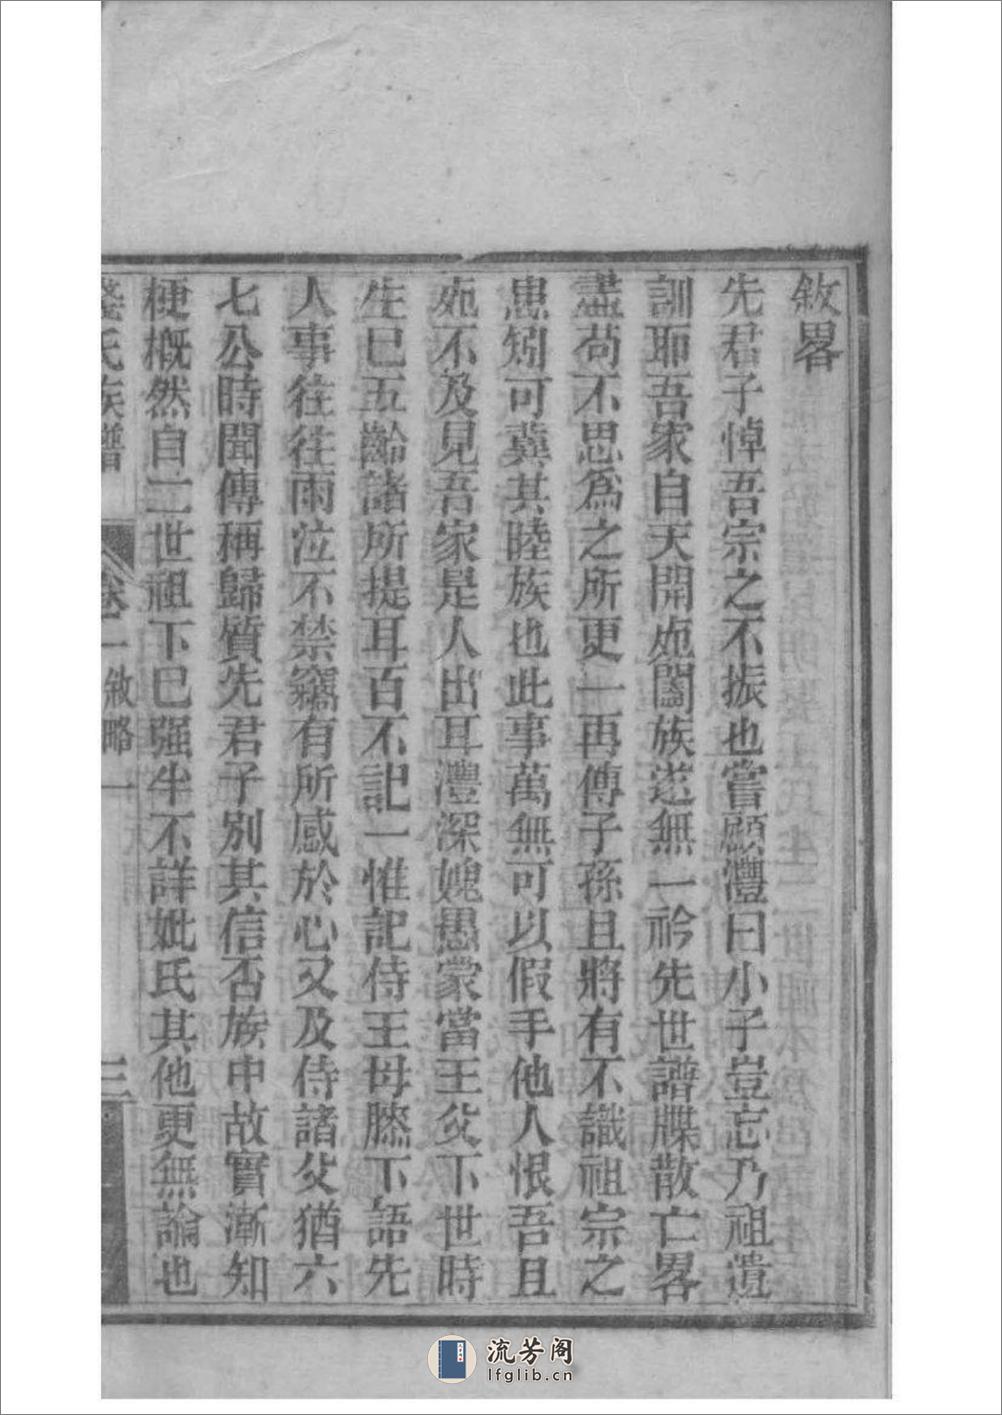 敘畧
先君子悼吾宗之不振也嘗顧灃曰小子豈忘乃祖遺
訓耶吾家自天開
闔族
無一矜先世譜牒散亡畧
盡苟不思為之所更一再傳子孫且將有不識祖宗之
患矧可冀其睦族也此事萬無可以假手他人恨吾且
不及見吾家是人出耳灃深媿愚蒙當王父下世時
生巳五齡諸所提耳百不記一惟記侍王母膝下語先
人事往往雨泣不禁竊有所感於心又及侍諸父猶六
七公時聞傳稱歸質先君子別其信否族中故實漸知
梗概然自二世祖下巳强半不詳妣氏其他更無論也
氏族譜
卷一
敘略一
三
流芳阁
lfglib.cn